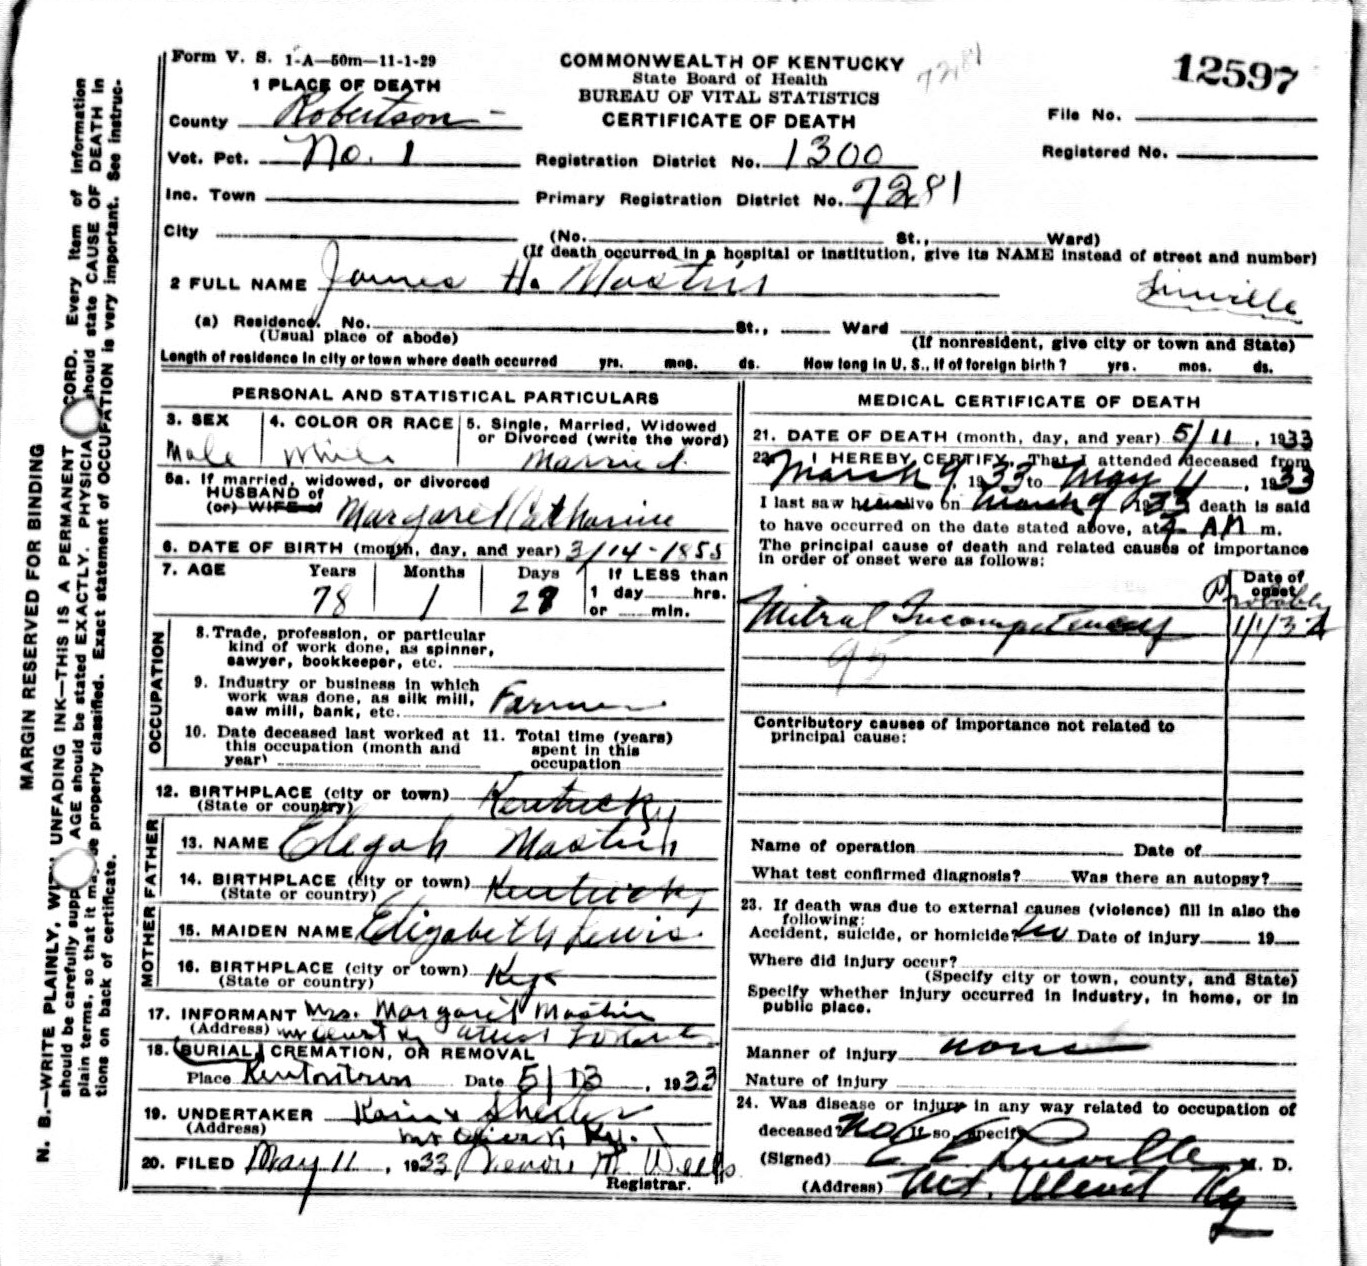 Form V. S. 1-A—50m—11-1-29
COMMONWEALTH OF KENTUCKY
State Board of Health
BUREAU OF VITAL STATISTICS
CERTIFICATE OF DEATH
7281
12597
1 PLACE OF DEATH
County Robertson
Vot. Pct. No. 1
Inc. Town
City
File No.
Registered No.
Registration District No. 1300
Primary Registration District No. 7281
(No. St., Ward)
(If death occurred in a hospital or institution, give its NAME instead of street and number)
2 FULL NAME James H. Mastin
Linville
(a) Residence. No. St., Ward
(Usual place of abode)
(If nonresident, give city or town and State)
Length of residence in city or town where death occurred yrs. mos. ds. How long in U. S., if of foreign birth? yrs. mos. ds.
PERSONAL AND STATISTICAL PARTICULARS
3. SEX
Male
4. COLOR OR RACE
White
5. Single, Married, Widowed
or Divorced (write the word)
Married
5a. If married, widowed, or divorced
HUSBAND of
(or) WIFE of Margaret Catharine
6. DATE OF BIRTH (month, day, and year) 3/14-1855
7. AGE Years Months Days If LESS than
78 1 28 1 day hrs.
or min.
OCCUPATION
8. Trade, profession, or particular
kind of work done, as spinner,
sawyer, bookkeeper, etc.
9. Industry or business in which
work was done, as silk mill,
saw mill, bank, etc. Farmer
10. Date deceased last worked at
this occupation (month and
year)
11. Total time (years)
spent in this
occupation
12. BIRTHPLACE (city or town) Kentucky
(State or country)
FATHER
13. NAME Elegah Mastin
14. BIRTHPLACE (city or town) Kentucky
(State or country)
MOTHER
15. MAIDEN NAME Elizabeth Lewis
16. BIRTHPLACE (city or town) Ky
(State or country)
17. INFORMANT Mrs. Margaret Mastin
(Address)
18. BURIAL, CREMATION, OR REMOVAL
Place Date 5/13, 1933
19. UNDERTAKER
(Address) Mt Olivet Ky.
20. FILED May 11, 1933 M. Wells
Registrar.
MEDICAL CERTIFICATE OF DEATH
21. DATE OF DEATH (month, day, and year) 5/11, 1933
22. I HEREBY CERTIFY, That I attended deceased from
March 9, 1933 to May 11, 1933
I last saw h alive on March 9, 1933 death is said
to have occurred on the date stated above, at AM m.
The principal cause of death and related causes of importance
in order of onset were as follows:
Date of
onset
Probably
Mitral Incompetency 1/1/32
95
Contributory causes of importance not related to
principal cause:
Name of operation Date of
What test confirmed diagnosis? Was there an autopsy?
23. If death was due to external causes (violence) fill in also the
following:
Accident, suicide, or homicide? Date of injury 19
Where did injury occur?
(Specify city or town, county, and State)
Specify whether injury occurred in industry, in home, or in
public place.
Manner of injury none
Nature of injury
24. Was disease or injury in any way related to occupation of
deceased? No If so, specify
(Signed) Linville M. D.
(Address) Mt. Olivet Ky
MARGIN RESERVED FOR BINDING
N. B.—WRITE PLAINLY, WITH UNFADING INK—THIS IS A PERMANENT RECORD. Every item of information
should be carefully supplied. AGE should be stated EXACTLY. PHYSICIANS should state CAUSE OF DEATH in
plain terms, so that it may be properly classified. Exact statement of OCCUPATION is very important. See instruc-
tions on back of certificate.